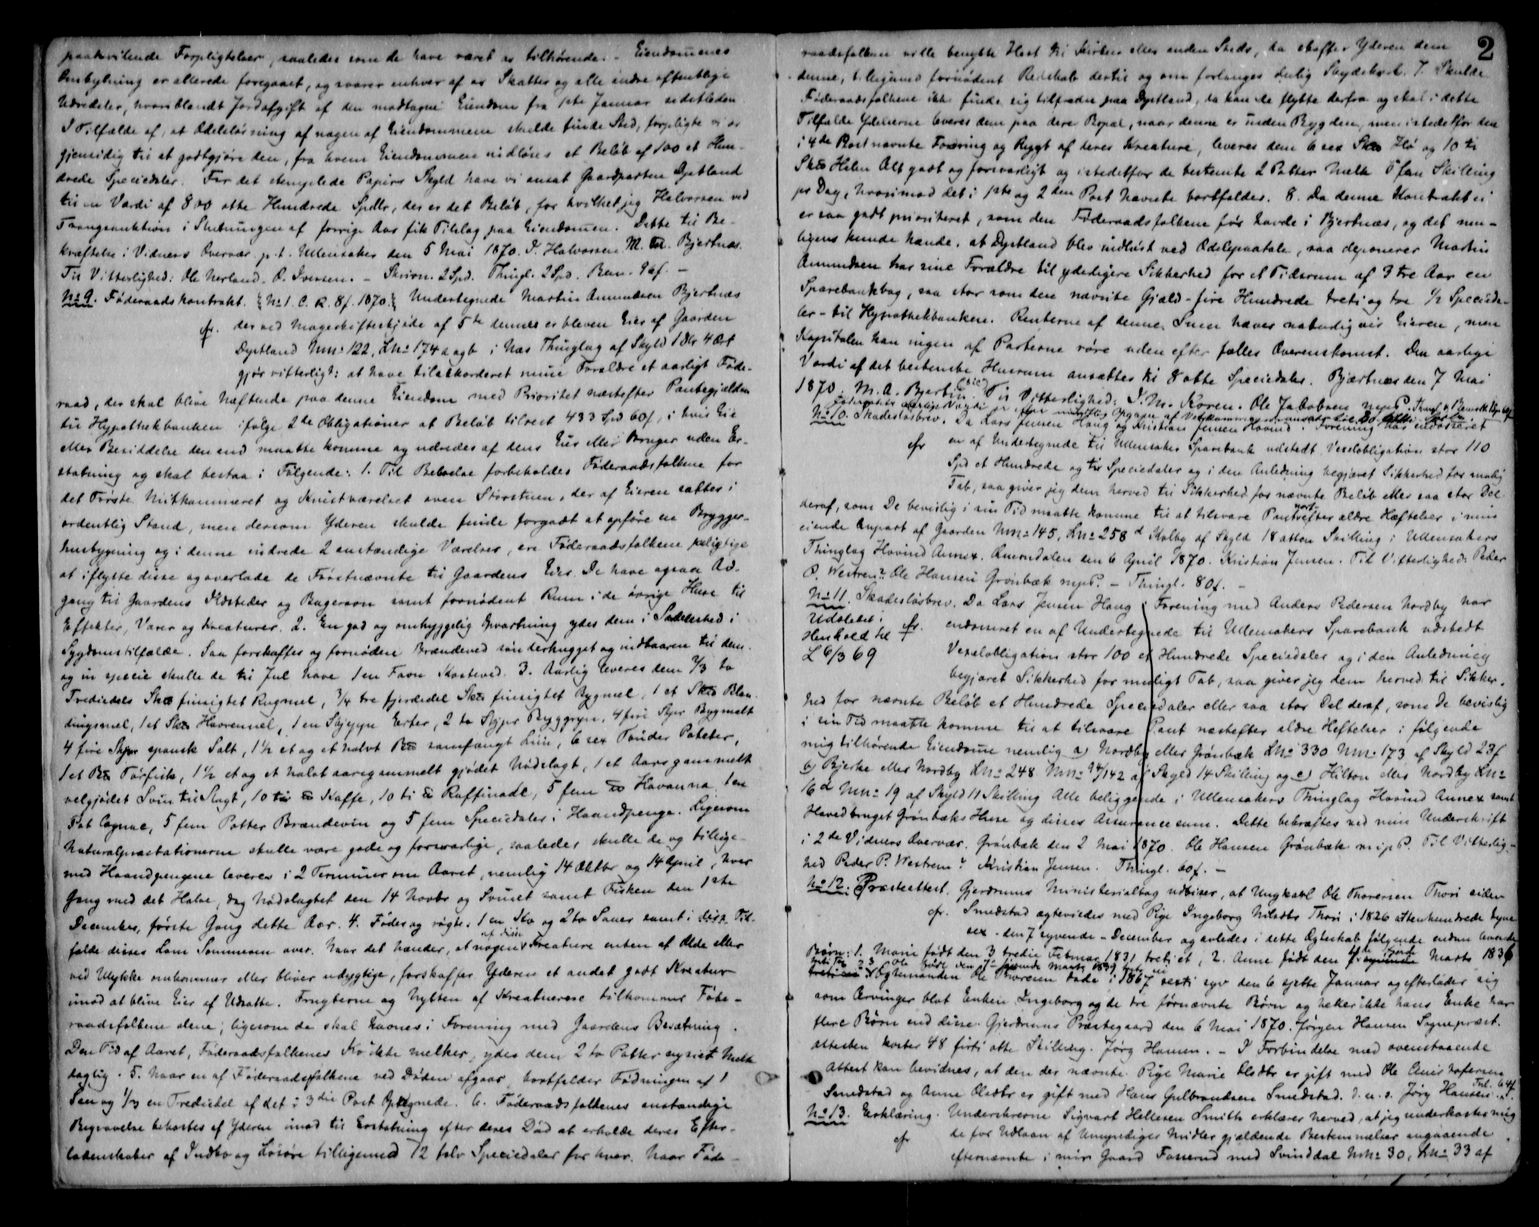 paahvilende Forpligtelser, saaledes som de have været os tilhørende. - Eiendommenes
Ombytning er allerede foregaaet, og svarer enhver af os Skatter og alle andre offentlige
Udredsler, hvoriblandt Jordafgift af den modtagne Eiendom fra 1ste Januar sidstleden
I Tilfælde af, at Odelsløsning af nogen af Eiendommene skulde finde Sted, forpligte vi os
gjensidig til at godtgjøre den, fra hvem Eiendommen indløses et Beløb af 100 et Hun-
drede Speciedaler. For det stemplede Papirs Skyld have vi ansat Gaardparten Dystland
til en Værdi af 800 otte Hundrede Spdlr, der er det Beløb, for hvilket jeg Halvorsen ved
Transaktion i Slutningen af forrige Aar fik Tilslag paa Eiendommen. Dette til Be-
kræftelse i Vidners Overvær p.t. Ullensaker den 5 Mai 1870. I. Halvorsen. M. A. Bjertnæs.
Til Vitterlighed: Ole Nerland. O. Iversen. - Skriv. 2 Spd. Thingl. 2 Spd. Ren. 9 s. -
No 9. Føderaadskontrakt. No 1. C. R. 8/ 1870. Undertegnede Martin Amundsen Bjertnæs
der ved Mageskifteskjøde af 5te dennes er bleven Eier af Gaarden
Dystland Mno 122, Lno 174 a og b i Næs Thinglag af Skyld 1 Dlr 4 Ort
gjør vitterligt: at have tilakkorderet mine Forældre et aarligt Føde-
raad, der skal blive hæftende paa denne Eiendom med Prioritet næstefter Pantegjælden
til Hypothekbanken ifølge 2de Obligationer at Beløb tilrest 433 Spd 60 s, i hvis Eie
eller Besiddelse den end maatte komme og udredes af dens Eier eller Bruger uden Er-
statning og skal bestaa i Følgende: 1. Til Beboelse forbeholdes Føderaadsfolkene for
det Første Nistkammeret og Kvistværelset oven Storstuen, der af Eieren sættes i
ordentlig Stand, men dersom Yderen skulde finde forgodt at opføre en Brygger-
husbygning og i denne indrede 2 anstændige Værelser, ere Føderaadsfolkene pligtige
at iflytte disse og overlade de Førstnævnte til Gaardens Eier. De have ogsaa Ad-
gang til Gaardens Ildsteder og Bagerovn samt fornødent Rum i de øvrige Huse til
Effekter, Varer og Kreaturer. 2. En god og omhyggelig Opvartning ydes dem i Særdeleshed i
Sygdomstilfælde. Saa forskaffes og fornøden Brændeved sønderhugget og indbaaren til dem
og in specie skulle de til Jul have 1 en Favn Kastved. 3. Aarlig leveres dem 2/3 to
Trediedels Skp finsigtet Rugmel, 3/4 tre fjerdedel Skp finsigtet Bygmel, 1 et Skp Blan-
dingsmel, 1 et Skp Havremel, 1 en Skjeppe Erter, 2 to Skjpr Byggryn, 4 fire Skpr Bygmalt
4 fire Skpr spansk Salt, 1 1/2 et og et halvt B℔ samfængt Liin, 6 sex Tønder Poteter,
1 et B℔ Tørfisk, 1 1/2 et og et halvt aarsgammelt gjødet Nødslagt, 1 et Aarsgammelt
velgjødet Sviin til Slagt, 10 ti ℔ Kaffe, 10 ti ℔ Raffinade, 5 fem ℔ Havanna, 1 en
Pot Cognac, 5 fem Potter Brændeviin og 5 fem Speciedaler i Haandpenge. Ligesom
Naturalpræstationerne skulle være gode og forsvarlige, saaledes skulle de og tillige
med Haandpengene leveres i 2 Terminer om Aaret, nemlig 14 Oktbr og 14 April, hver
Gang med det Halve, dog Nødslagtet den 14 Novbr og Sviinet samt Fisken den 1ste
December, første Gang dette Aar. 4. Fødes og røgtes 1 en Ko og 2 to Sauer samt i disp. Til-
fælde disses Lam Sommeren over. Naar det hænder, at nogen af disse Kreature enten af Ælde eller
ved Ulykke omkommer eller bliver udygtige, forskaffer Yderen et andet godt Kreatur
imod at blive Eier af Udsatte. Frugterne og Nytten af Kreaturerne tilkommer Føde-
raadsfolkene alene; ligesom de skal havnes i Forening med Gaardens Besætning.
Den Tid af Aaret, Føderaadsfolkenes Ko ikke melker, ydes dem 2 to Potter nysiet Melk
daglig. 5. Naar en af Føderaadsfolkene ved Døden afgaar, bortfalder Fødningen af 1
Sau og 1/3 en Trediedel af det i 3die Post Optegnede. 6. Føderaadsfolkenes anstændige
Begravelse bekostes af Yderen imod til Erstatning efter deres Død at erholde deres Efter-
ladenskaber af Indbo og Løsøre tilligemed 12 tolv Speciedaler for hver. Naar Føde-
2
raadsfolkene ville benytte Hest til Kirken eller anden Steds, da skaffer Yderen dem
denne, tilligemed fornødent Redskab dertil og om forlanges dulig Skydskarl. 7. Skulde
Føderaadsfolkene ikke finde sig tilfredse paa Dystland, da kan de flytte derfra og skal i dette
Tilfælde Ydelserne leveres dem paa deres Bopæl, naar denne er inden Bygden, men istedetfor den
i 4de Post nævnte Fodring og Røgt af deres Kreature, leveres dem 6 sex Sk℔ Hø og 10 ti
Sk℔ Halm Alt godt og forsvarligt og istedetfor de bestemte 2 Potter Melk 5 fem Skilling
pr Dag, hvorimod det i 1ste og 2den Post Nævnte bortfaldes. 8. Da denne Kontrakt ei
er saa godt prioriteret, som den Føderaadsfolkene før havde i Bjertnæs, og det mu-
ligens kunde hænde, at Dystland blev indløst ved Odelspaatale, saa deponerer Martin
Amundsen hos sine Forældre til yderligere Sikkerhed for et Tidsrum af 3 tre Aar en
Sparebankbog, saa stor som den nævnte Gjæld - fire Hundrede treti og tre 1/2 Specieda-
ler - til Hypothekbanken. Renterne af denne Sum hæves naturligvis Eieren, men
Kapitalen kan ingen af Parterne røre uden efter fælles Overenskomst. Den aarlige
Værdi af det bestemte Huusrum ansættes til 8 otte Speciedaler. Bjærtnæs den 7 Mai
1870. M. A. Bjertnæs. Til Vitterlighed: J. Mr. Koren. Ole Jakobsen m.p.P.
No 10. Skadesløsbrev. Da Lars Jensen Haug og Kristian Jensen Hovind i Forening har endosseret
en af Undertegnede til Ullensakers Sparebank udstedt Vexelobligation stor 110
Spd et Hundrede og ti Speciedaler og i den Anledning begjæret Sikkerhed for mulig
Tab, saa giver jeg dem herved til Sikkerhed for nævnte Beløb eller saa stor Del
deraf, som De bevislig i sin Tid maatte komme til at tilsvare Pant næstefter ældre Hæftelser i min
eiende Anpart af Gaarden Mno 145, Lno 258 d Kolby af Skyld 18 atten Skilling i Ullensakers
Thinglag Hovind Annex. Romsdalen den 6 April 1870. Kristian Jensen. Til Vitterlighed: Peder
P. Western. Ole Hansen Grønbæk m.p.P. - Thingl. 80 s. -
No 11. Skadesløsbrev. Da Lars Jensen Haug i Forening med Anders Pedersen Nordby har
Udslettet.
Henhold til
L 6/3 69
endosseret en af Undertegnede til Ullensakers Sparebank udstedt
Vexelobligation stor 100 et Hundrede Speciedaler og i den Anledning
begjæret Sikkerhed for muligt Tab, saa giver jeg dem herved til Sikker-
hed for nævnte Beløb et Hundrede Speciedaler eller saa stor Del deraf, som De bevislig
i sin Tid maatte komme til at tilsvare Pant næstefter ældre Heftelser i følgende
mig tilhørende Eiendomme nemlig a) Nordby eller Grønbæk Lno 330 Mno 173 af Skyld 23 s
b) Bjerke eller Nordby Lno 248 Mno 142 af Skyld 14 Skilling og c) Hilton eller Nordby Lno
16 d Mno 19 af Skyld 11 Skilling Alle beliggende i Ullensakers Thinglag Hovind Annex samt
Hovedbruget Grønbæks Huse og disses Assurancesum. Dette bekræftes ved min Underskrift
i 2de Vidners Overvær. Grønbæk den 2 Mai 1870. Ole Hansen Grønbæk m.p.P. Til Vitterlig-
hed Peder P. Western. Kristian Jensen. Thingl. 60 s. -
No 12. Præsteattest. Gjerdrums Ministerialbog udviser, at Ungkarl Ole Thoresen Thori siden
Smedstad ægteviedes med Pige Ingeborg Nilsdtr Thori i 1826 attenhundrede tyve
sex - den 7 syvende - December og avledes i dette Ægteskab følgende endnu levende
Børn: 1. Marie født den 3 tredie Februar 1831 treti et, 2. Anne født den Marts 1836
Ægtemanden Ole Thoresen døde i 1867 sexti syv den 6 sjette Januar og efterlader sig
som Arvinger blot Enken Ingeborg og de tre fornævnte Børn og heller ikke hans Enke har
flere Børn end disse. Gjerdrums Præstegaard den 6 Mai 1870. Jørgen Hansen Sognepræst.
Attesten koster 48 firti otte Skilling. Jørg Hansen. - I Forbindelse med ovenstaaende
Attest kan bevidnes, at den der nævnte Pige Marie Olsdtr er gift med Ole Amundsen
Smedstad og Anne Olsdtr er gift med Hans Gulbrandsen Smedstad. d. u. s. Jørg Hansen.
No 13. Erklæring. Underskrevne Sigvart Hellesen Smith erklærer herved, at jeg underkaster mig
de for Udlaan af Umyndiges Midler gjældende Bestemmelser angaaende
efternævnte i min Gaard Fosserud med Svinddal Mno 30, Lno 33 af